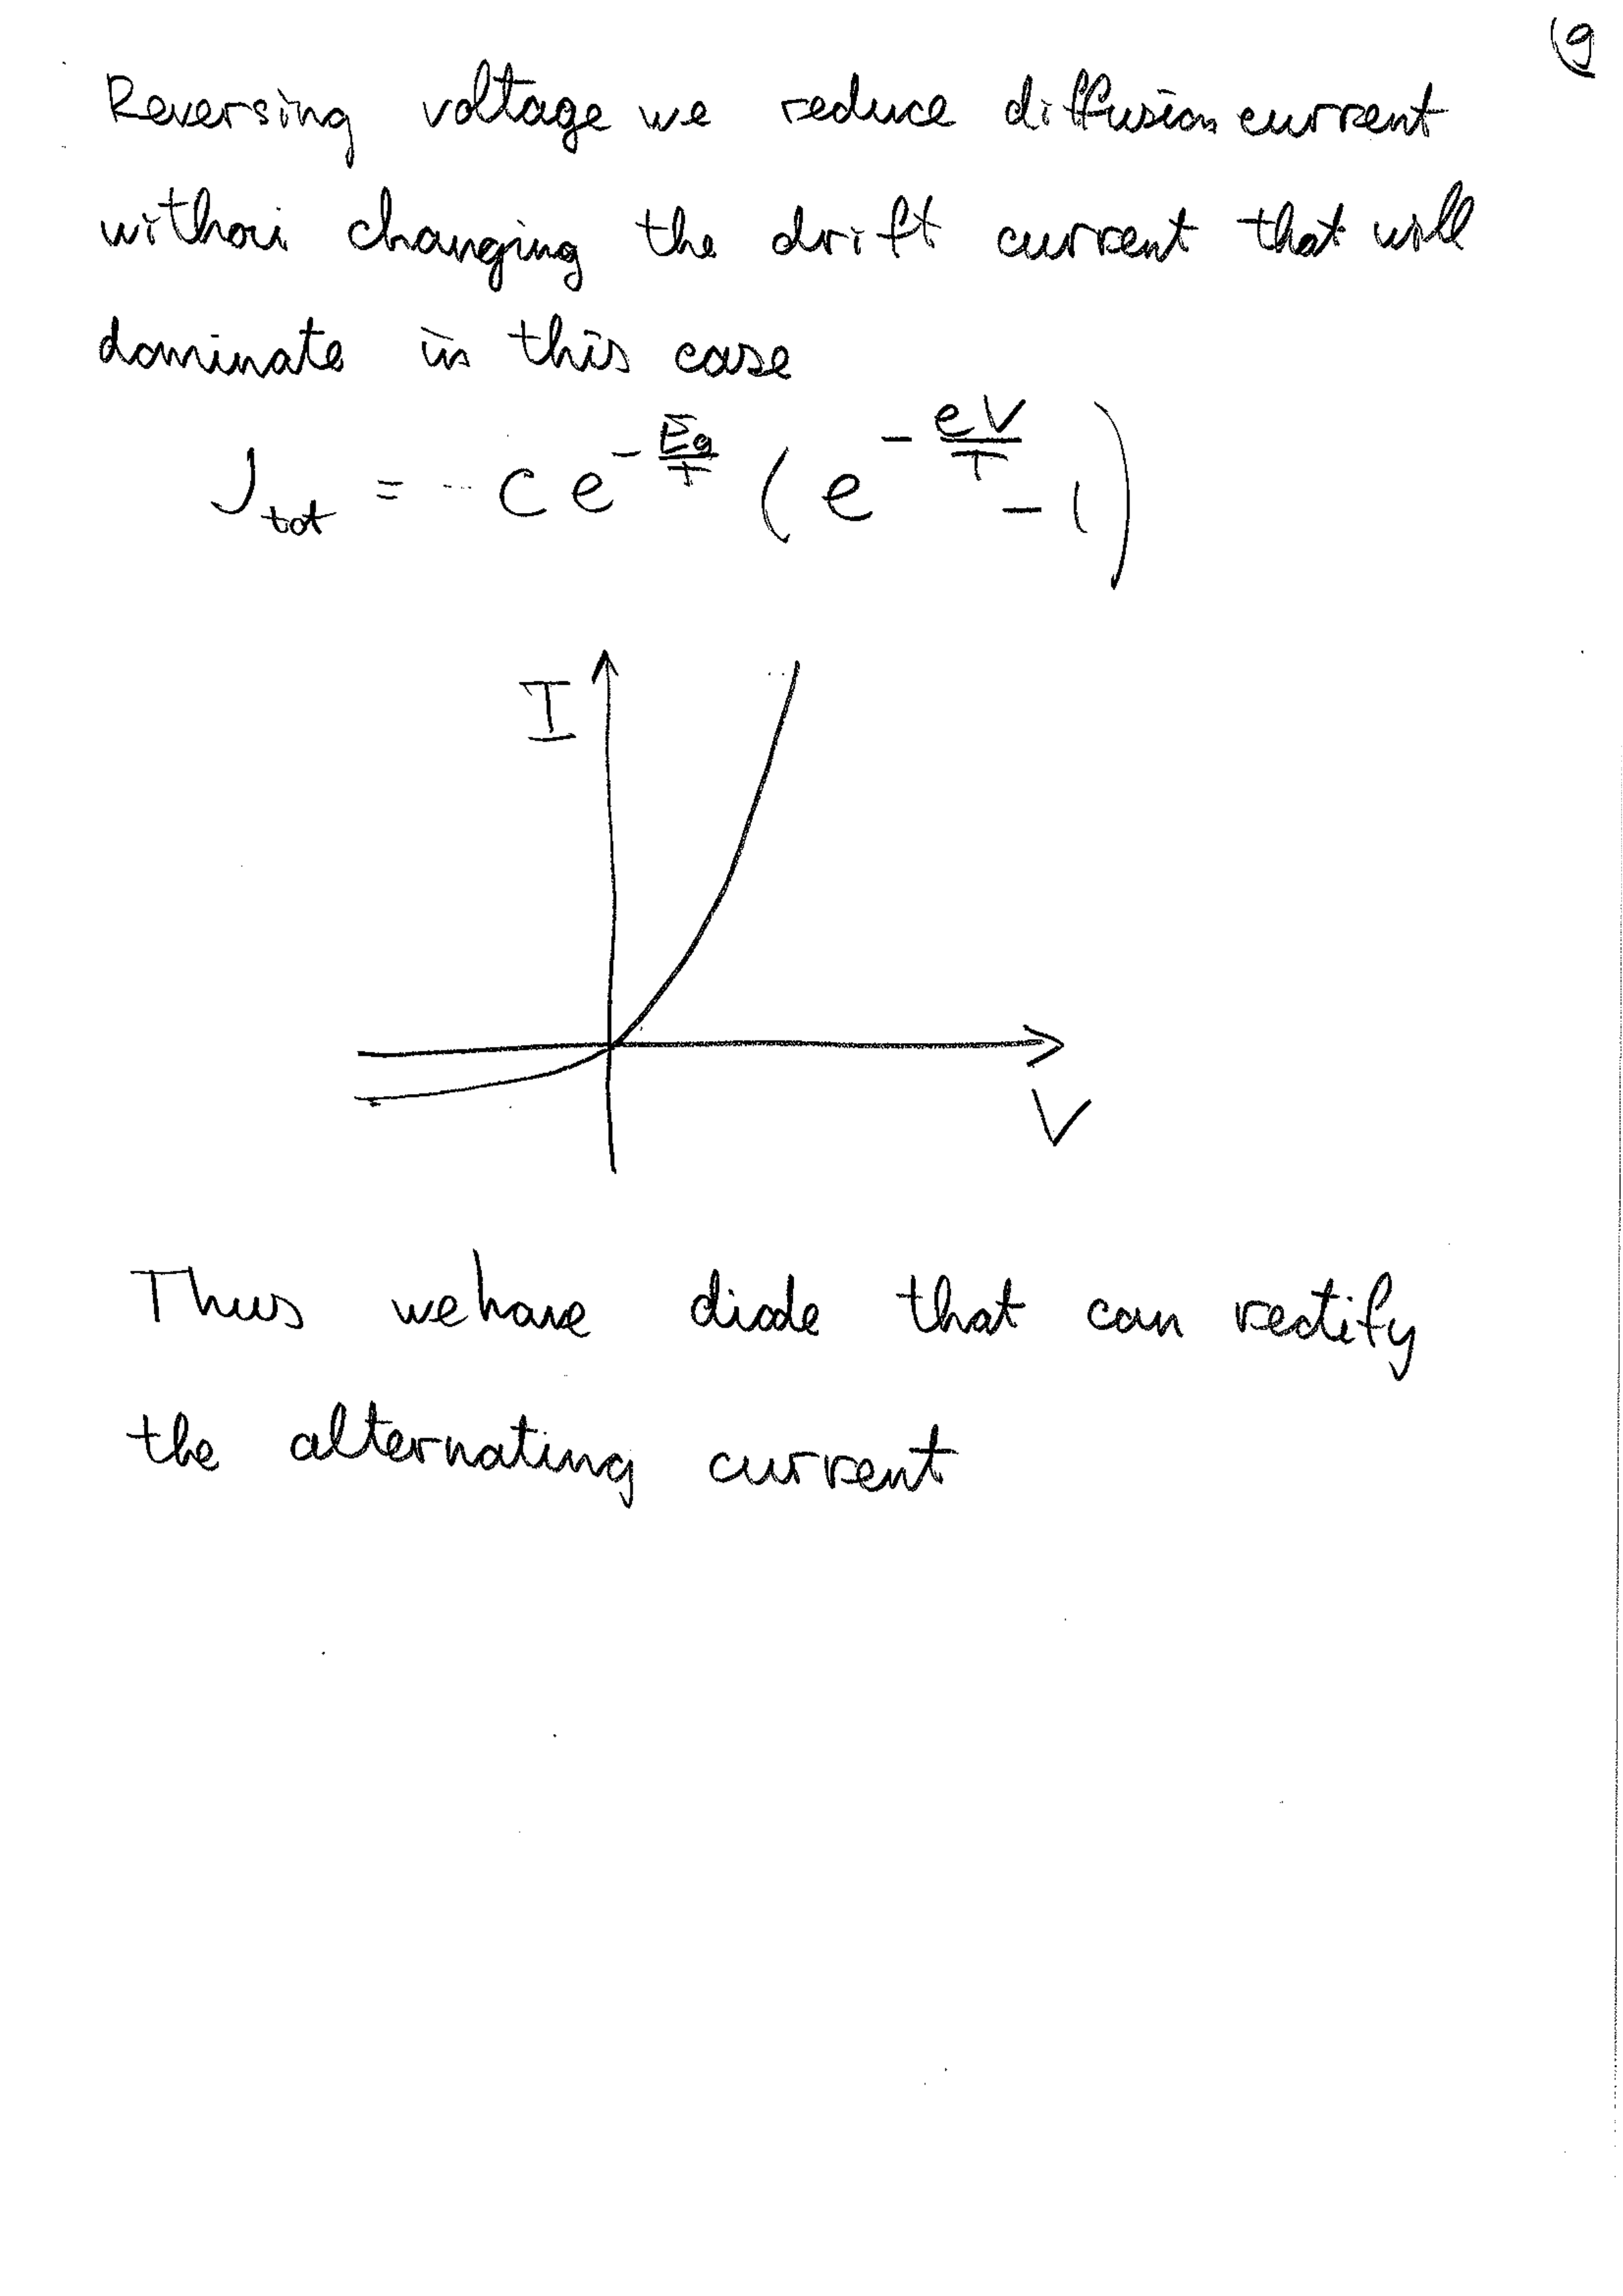 9
Reversing voltage we reduce diffusion current
withou changing the drift current that will
dominate in this case
J_tot = - C e^{-\frac{Eg}{T}} ( e^{-\frac{eV}{T}} - 1 )
I
V
Thus we have diode that can rectify
the alternating current